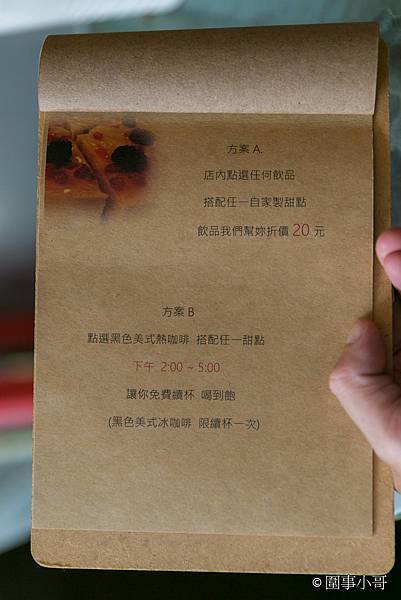 方案 A.
店內點選任何飲品
搭配任一自家製甜點
飲品我們幫妳折價 20 元
方案 B
點選黑色美式熱咖啡 搭配任一甜點
下午 2:00 ~ 5:00
讓你免費續杯 喝到飽
(黑色美式冰咖啡 限續杯一次)
© 圍事小哥